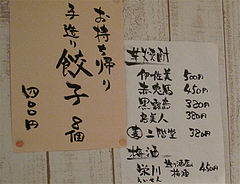 お持ち帰り
手造り餃子8個
四〇〇円
芋焼酎
伊佐美 500円
赤兎馬 450円
黒霧島 380円
島美人 380円
麦 二階堂 380円
梅酒
栄川 造り酒屋の梅酒 450円